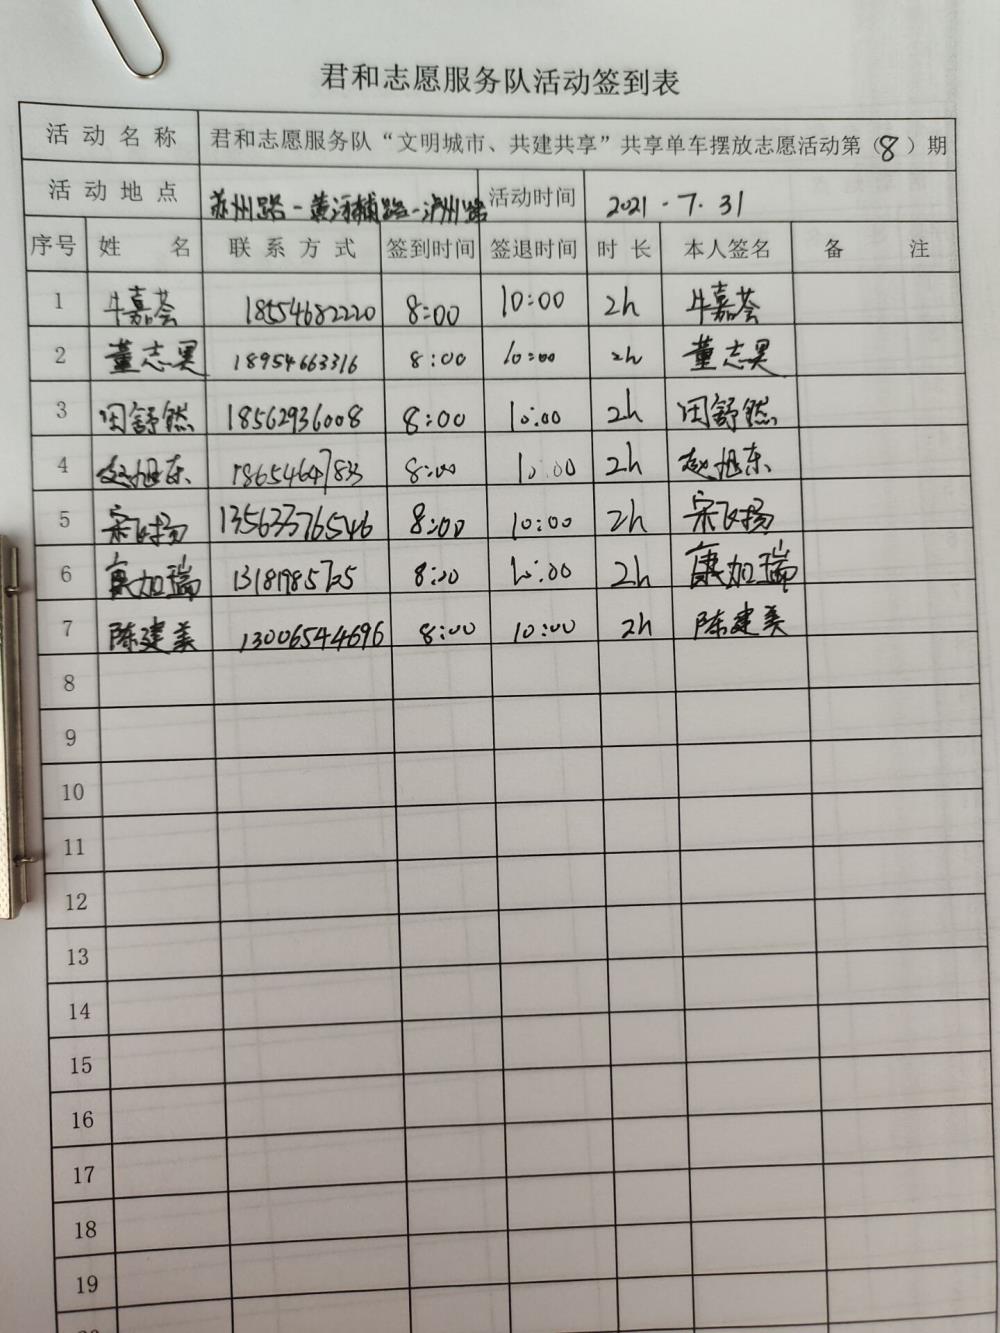 君和志愿服务队活动签到表
活动名称 君和志愿服务队“文明城市、共建共享”共享单车摆放志愿活动第(8)期
活动地点 苏州路-黄河辅路-泸州路 活动时间 2021.7.31
序号 姓名 联系方式 签到时间 签退时间 时长 本人签名 备注
1 牛嘉荟 18554682220 8:00 10:00 2h 牛嘉荟
2 董志昊 18954663316 8:00 10:00 2h 董志昊
3 闫舒然 18562936008 8:00 10:00 2h 闫舒然
4 赵旭东 18654647833 8:00 10:00 2h 赵旭东
5 宋飞扬 13563376546 8:00 10:00 2h 宋飞扬
6 康加瑞 13181985725 8:00 10:00 2h 康加瑞
7 陈建美 13006544696 8:00 10:00 2h 陈建美
8
9
10
11
12
13
14
15
16
17
18
19